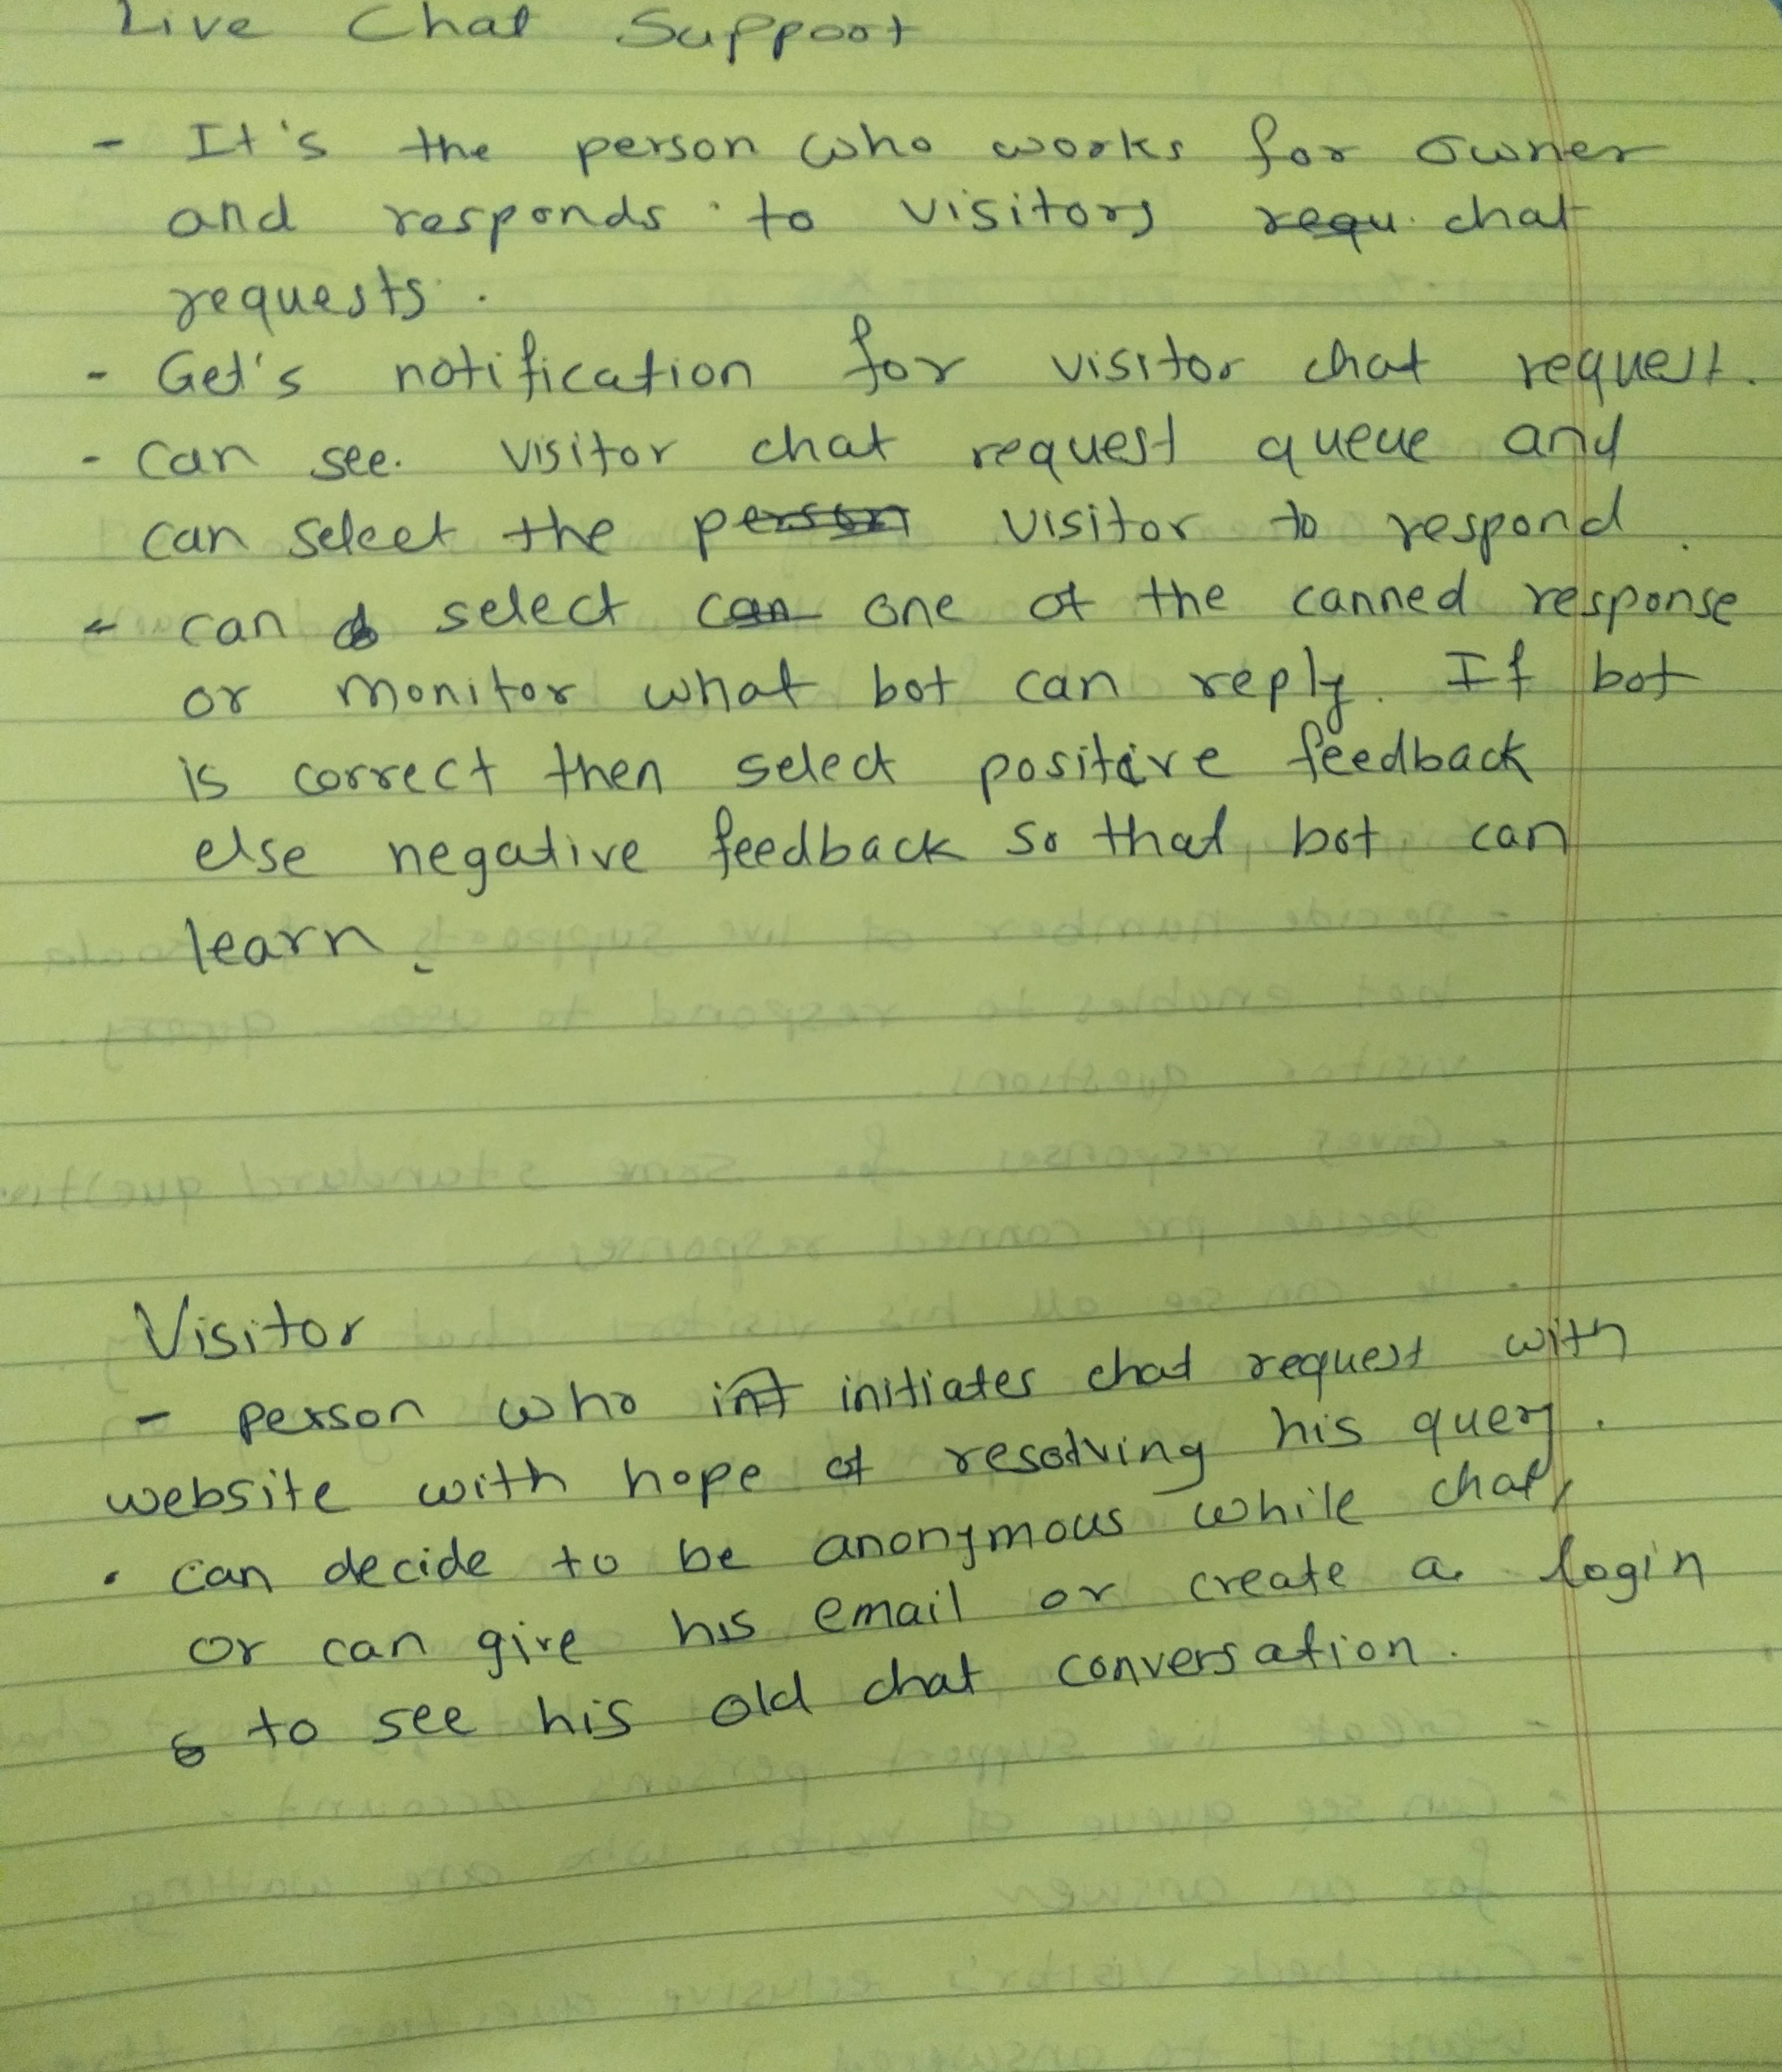 Live Chat Support
- It's the person who works for owner
and responds to visitors requ. chat
requests.
- Get's notification for visitor chat request.
- can see. visitor chat request queue and
can select the person visitor to respond.
- can select can one of the canned response
or monitor what bot can reply. If bot
is correct then select positive feedback
else negative feedback so that bot can
learn.
Visitor
- person who int initiates chat request with
website with hope of resolving his query.
• can decide to be anonymous while chat,
or can give his email or create a login
to see his old chat conversation.